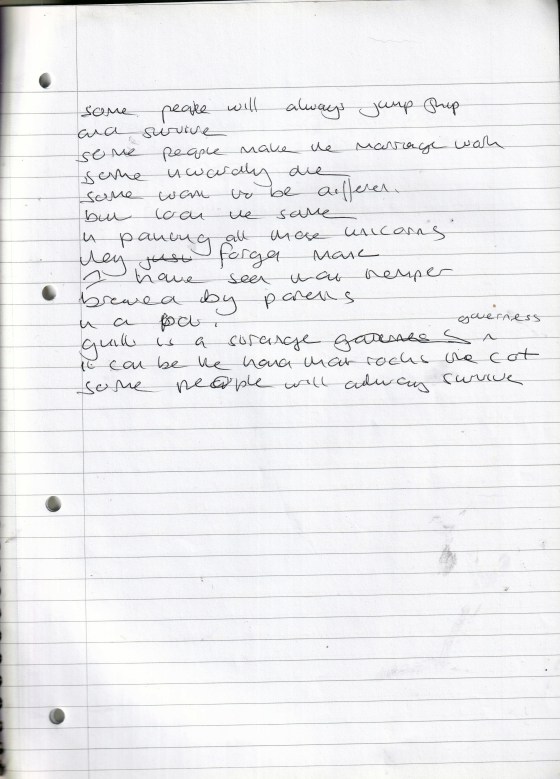 some people will always jump ship
and survive
some people make the marriage work
some inwardly die
some want to be different.
but look the same
in painting all those unicorns
they just forget more
I have seen that temper
brewed by parents
in a pot.
guilt is a strange governess
it can be the hand that rocks the cot
some people will always survive